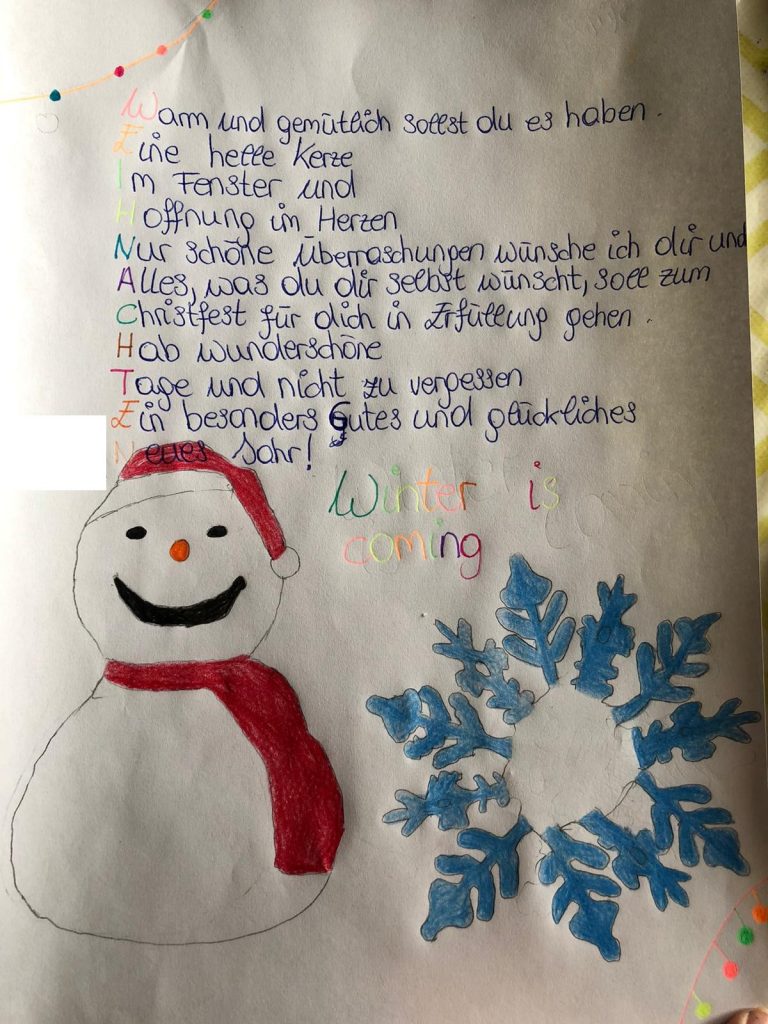 Warm und gemütlich sollst du es haben.
Eine helle Kerze
Im Fenster und
Hoffnung im Herzen
Nur schöne Überraschungen wünsche ich dir und
Alles, was du dir selbst wünscht, soll zum
Christfest für dich in Erfüllung gehen.
Hab wunderschöne
Tage und nicht zu vergessen
Ein besonders Gutes und glückliches
Neues Jahr!
Winter is
coming